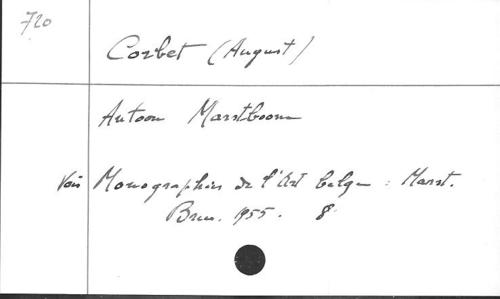 720
Corbet (August)
Antoon Marstboom
Vois Monographies de l'Art belge : Marst.
Brux. 1955. 8°